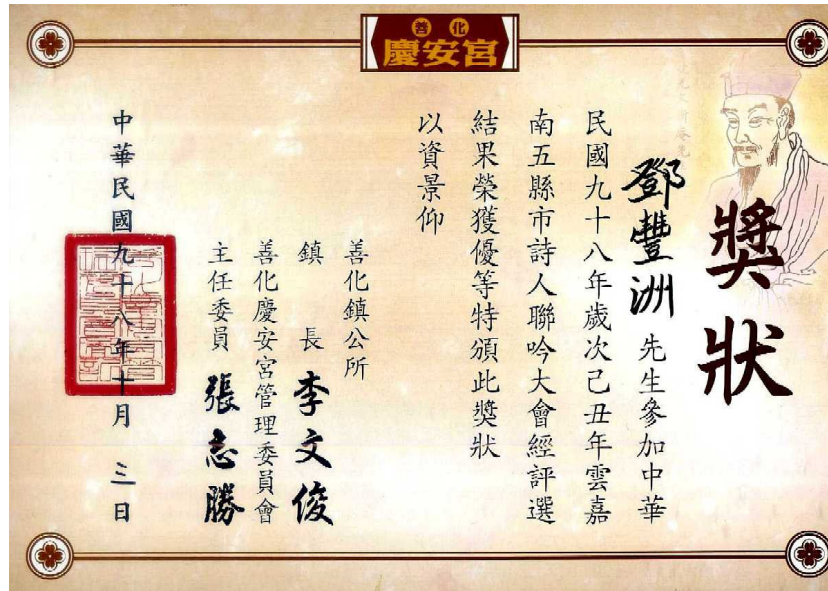 善化
慶安宮
獎狀
鄧豐洲先生參加中華
民國九十八年歲次己丑年雲嘉
南五縣市詩人聯吟大會經評選
結果榮獲優等特頒此獎狀
以資景仰
善化鎮公所
鎮長李文俊
善化慶安宮管理委員會
主任委員張志勝
中華民國九十八年十月三日